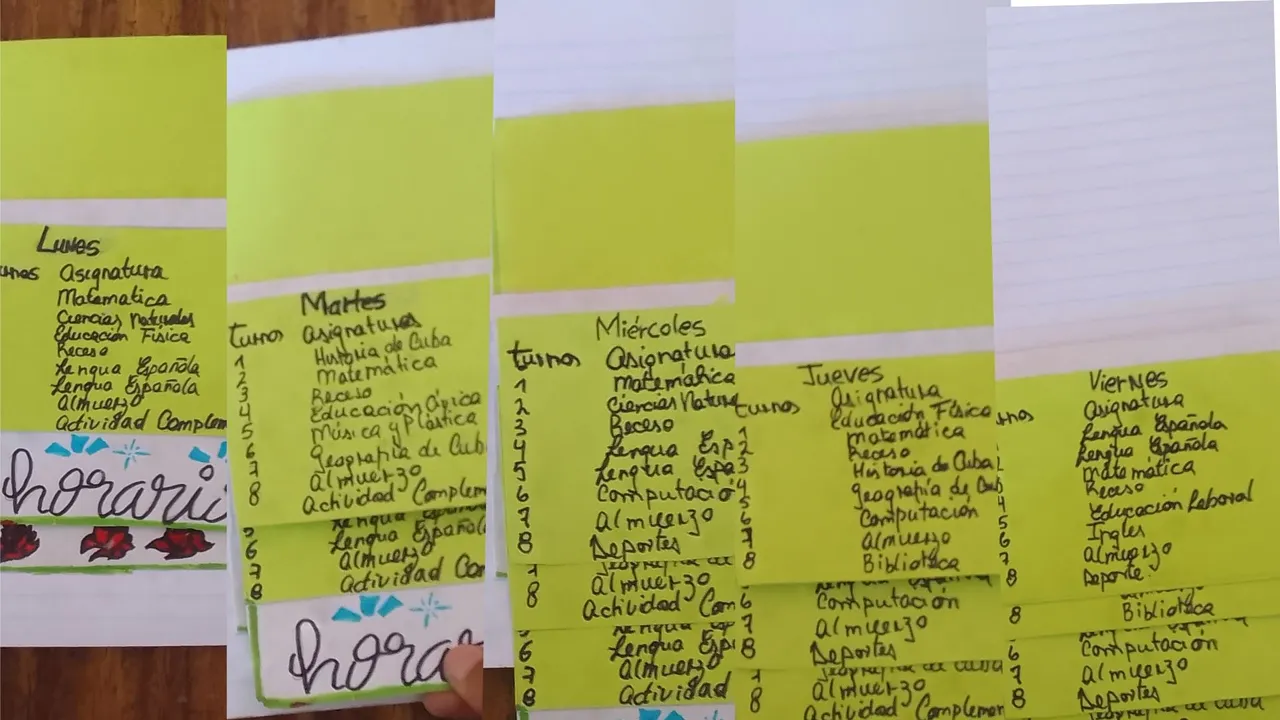 Lunes
Asignatura
Matematica
Ciencias Naturales
Educación Física
Receso
Lengua Española
Lengua Española
Almuerzo
Actividad Complem
horario
Martes
Turnos Asignaturas
1 Historia de Cuba
2 Matemática
3 Receso
4 Educación Cívica
5 Música y Plástica
6 Geografía de Cub
7 Almuerzo
8 Actividad Complem
Lengua Española
6 Lengua Español
7 Almuerzo
8 Actividad Co
hora
Miércoles
Turnos Asignatura
1 Matemática
2 Ciencias Natura
3 Receso
4 Lengua Esp
5 Lengua Espa
6 Computació
7 Almuerzo
8 Deportes
Almuerzo
8 Actividad Com
6 Lengua Esp
7 Almuerzo
8 Actividad
Jueves
turnos Asignatura
1 Educación Física
2 Matemática
3 Receso
4 Historia de Cuba
5 Geografía de Cub
6 Computación
7 Almuerzo
8 Biblioteca
6 Computación
7 Almuerzo
8 Deportes
7 Almuerzo
8 Actividad Complemen
Viernes
rnos Asignatura
Lengua Española
Lengua Española
Matemática
4 Receso
5 Educación Laboral
6 Ingles
7 Almuerzo
8 Deporte.
8 Biblioteca
6 Computación
7 Almuerzo
8 Deportes